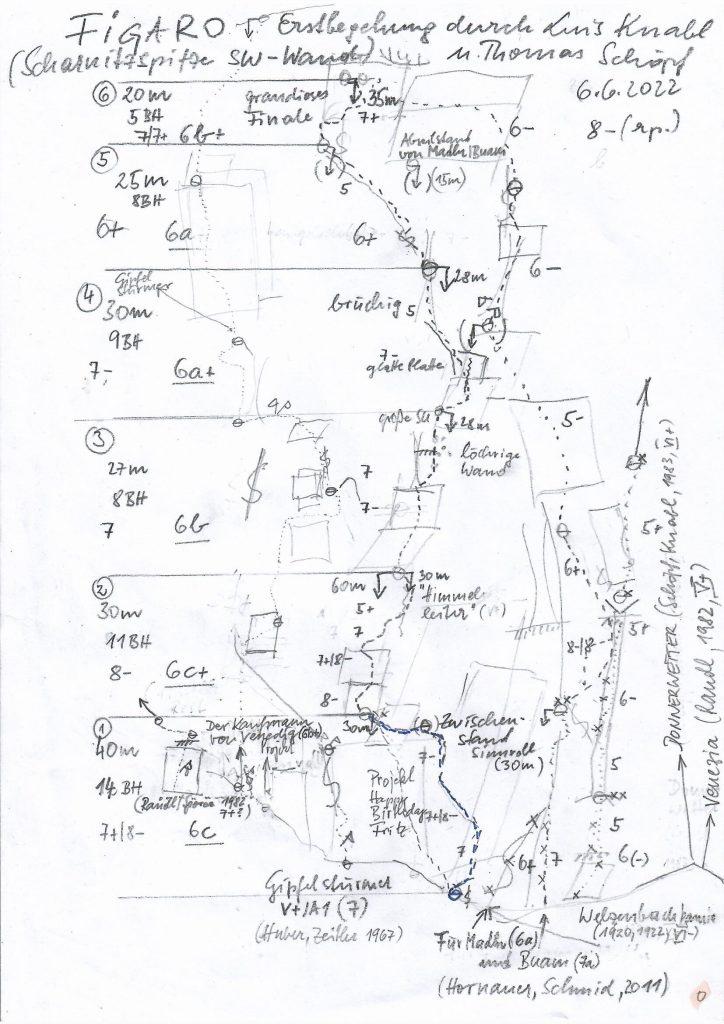 FIGARO Erstbegehung durch Luis Knabl
(Scharnitzspitze SW-Wand) u. Thomas Schöpf
6.6.2022
8-(rp.)
⑥ 20m
5BH
7/7+ 6b+
grandioses
Finale
35m
7+
6-
Abseilstand
von Madln/Buam
(15m)
5
⑤
25m
8BH
6+ 6a
6+
28m
6-
④
30m
9BH
7- 6a+
Gipfel
stürmer
brüchig 5
7-
glatte Platte
große SU
28m
5-
③
27m
8BH
7 6b
löchrige
Wand
7
7-
②
30m
11BH
8- 6c+
60m
30m
"Himmels
leiter"
5+
7
7+/8-
8-
6+
8-/8
5+
5+
6-
①
40m
14BH
7+/8- 6c
Der Kaufmann
von Venedig (6b+)
Projekt
7+?
30m
Zwischen-
stand
(30m)
7-
Projekt
Happy
Birthday
Fritz
7+/8-
7
6+
7
5
5
6(-)
Gipfelstürmer
V+/A1 (7)
(Huber, Zeitler 1967)
Für Madln (6a)
und Buam (7a)
(Hornauer, Schmid, 2011)
Welzenbachkamin
DONNERWETTER (Schöpf, Knabl, 1983, VI+)
Venezia (Randl, 1982, V+)
0